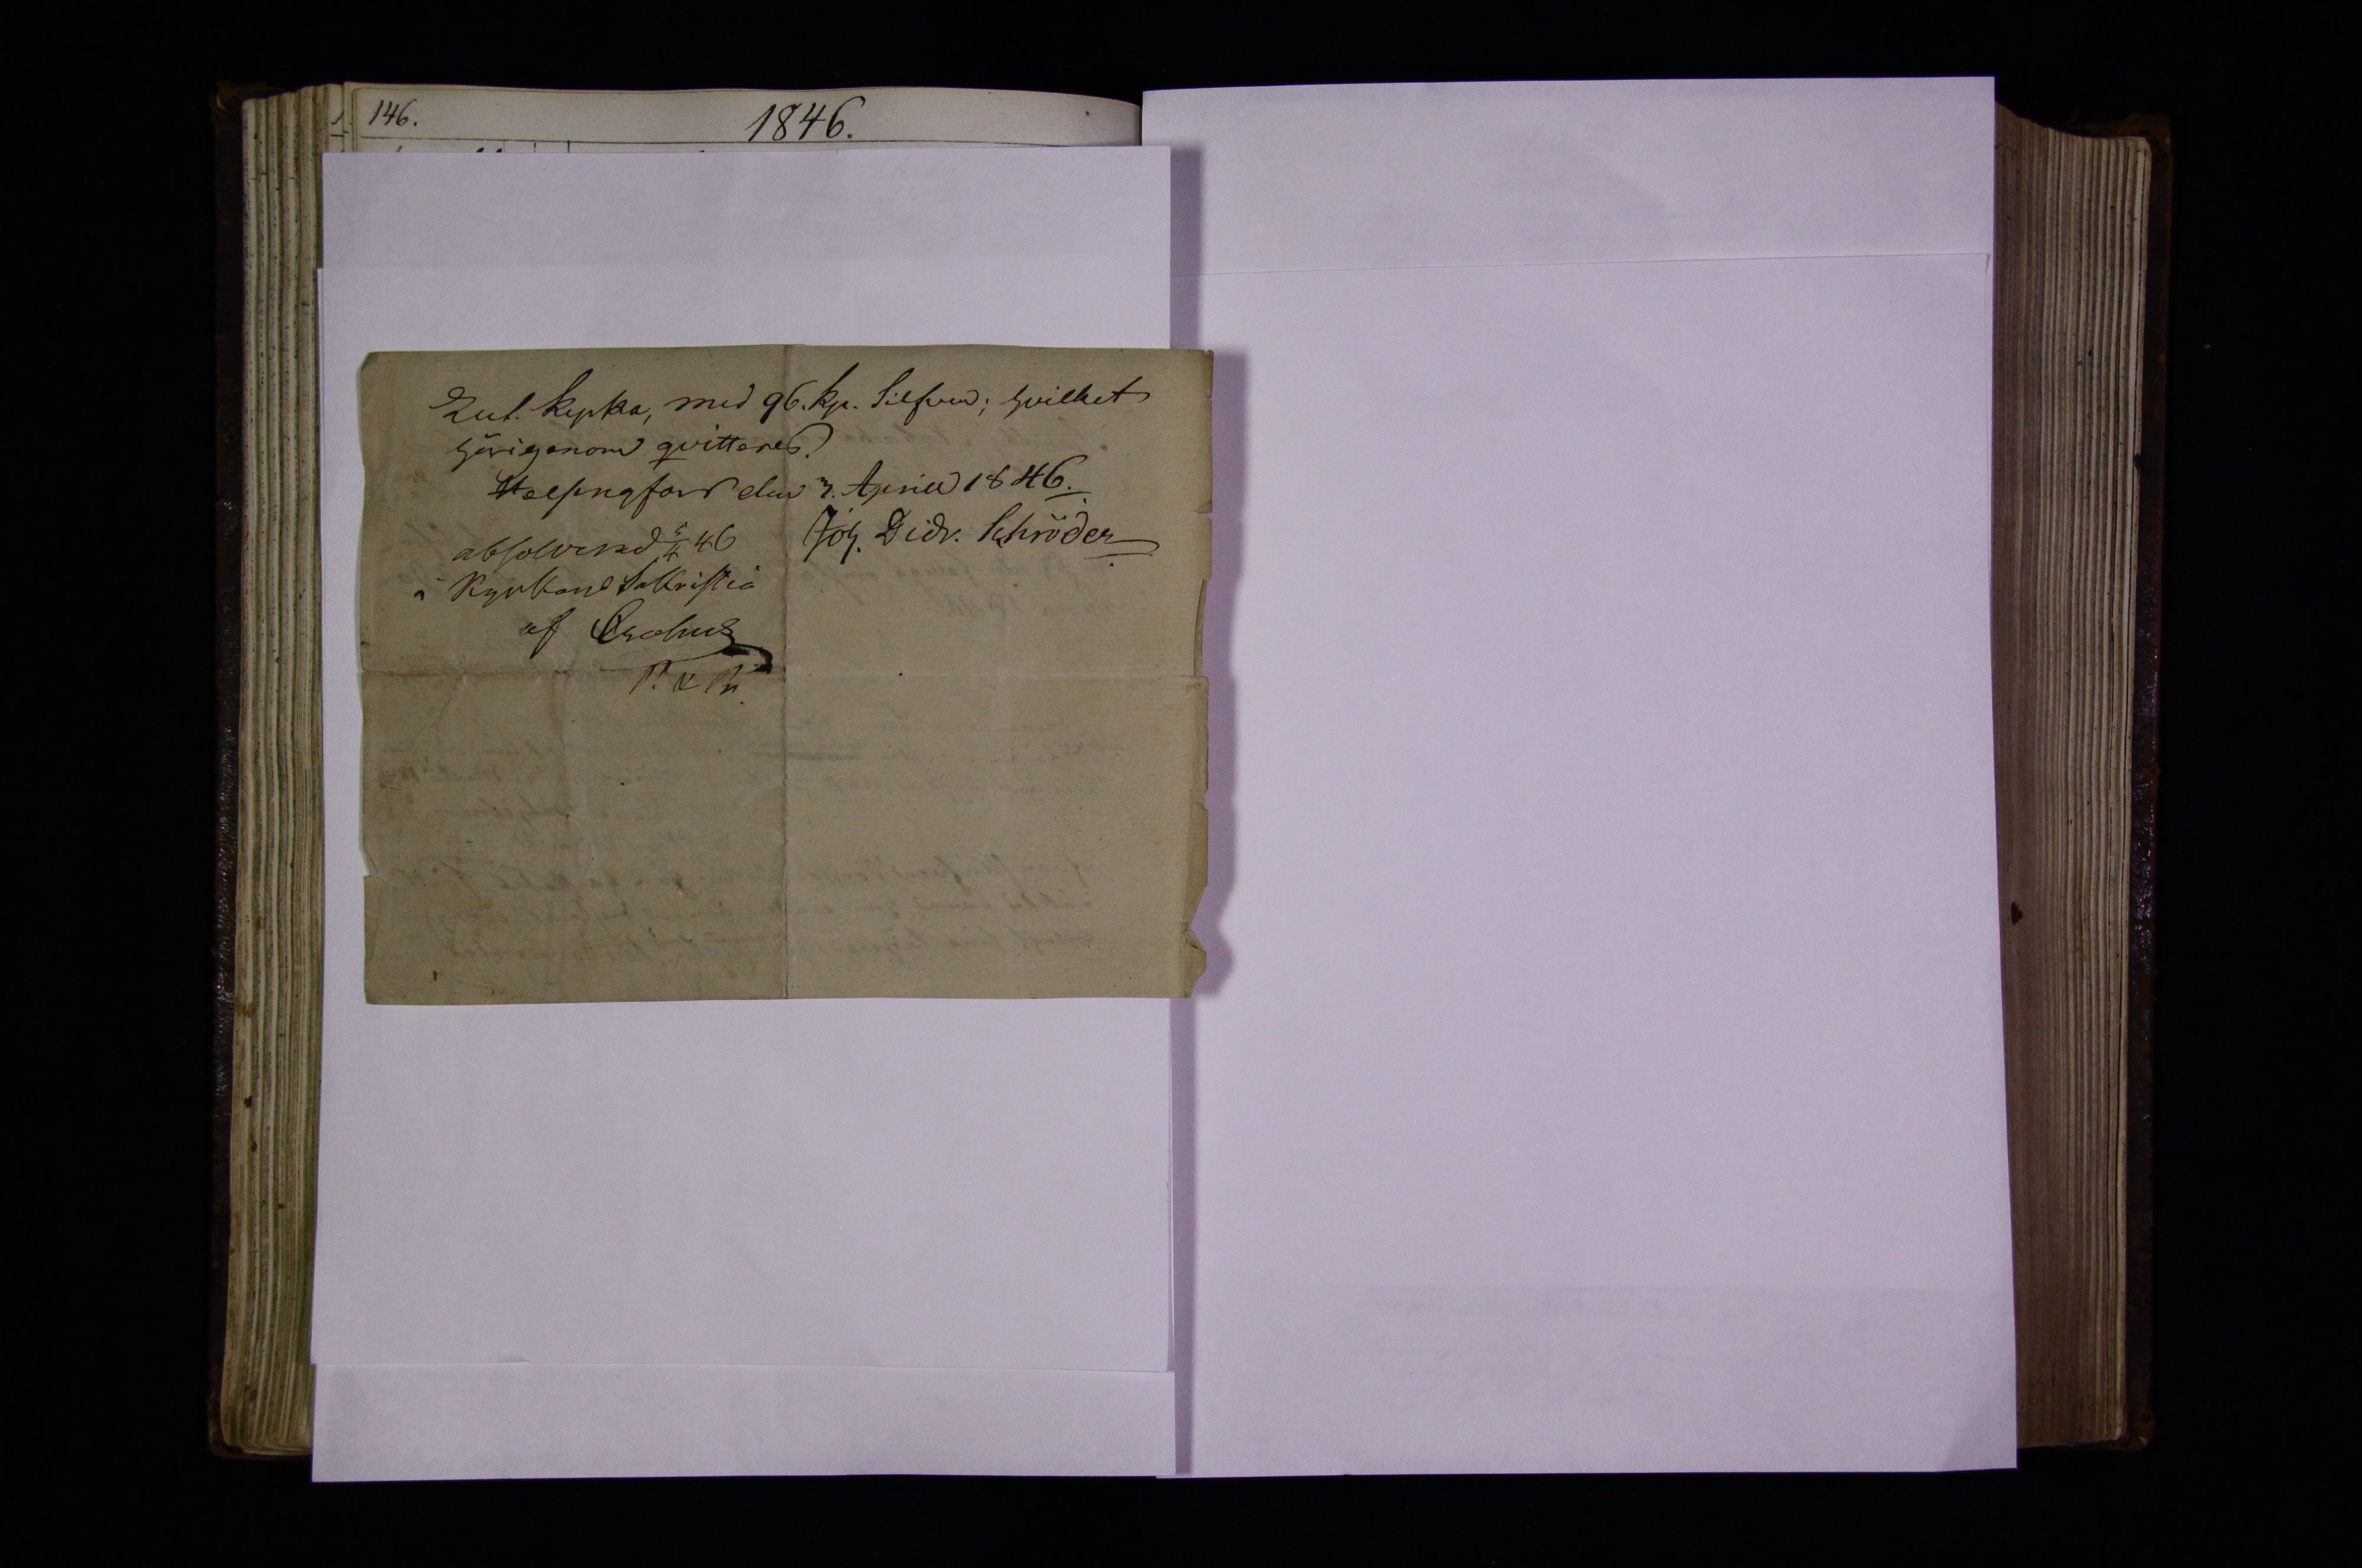 146.
1846.
Lut. Kypka, med 96. kp. Silfver; hvilket
härigenom qvitteres.
Helsingfors den 3. Aprill 1846.
Joh. Didr. Schröder
absolverad 5/4 46
i Kyrkans Sakristia
af
P. & Pn